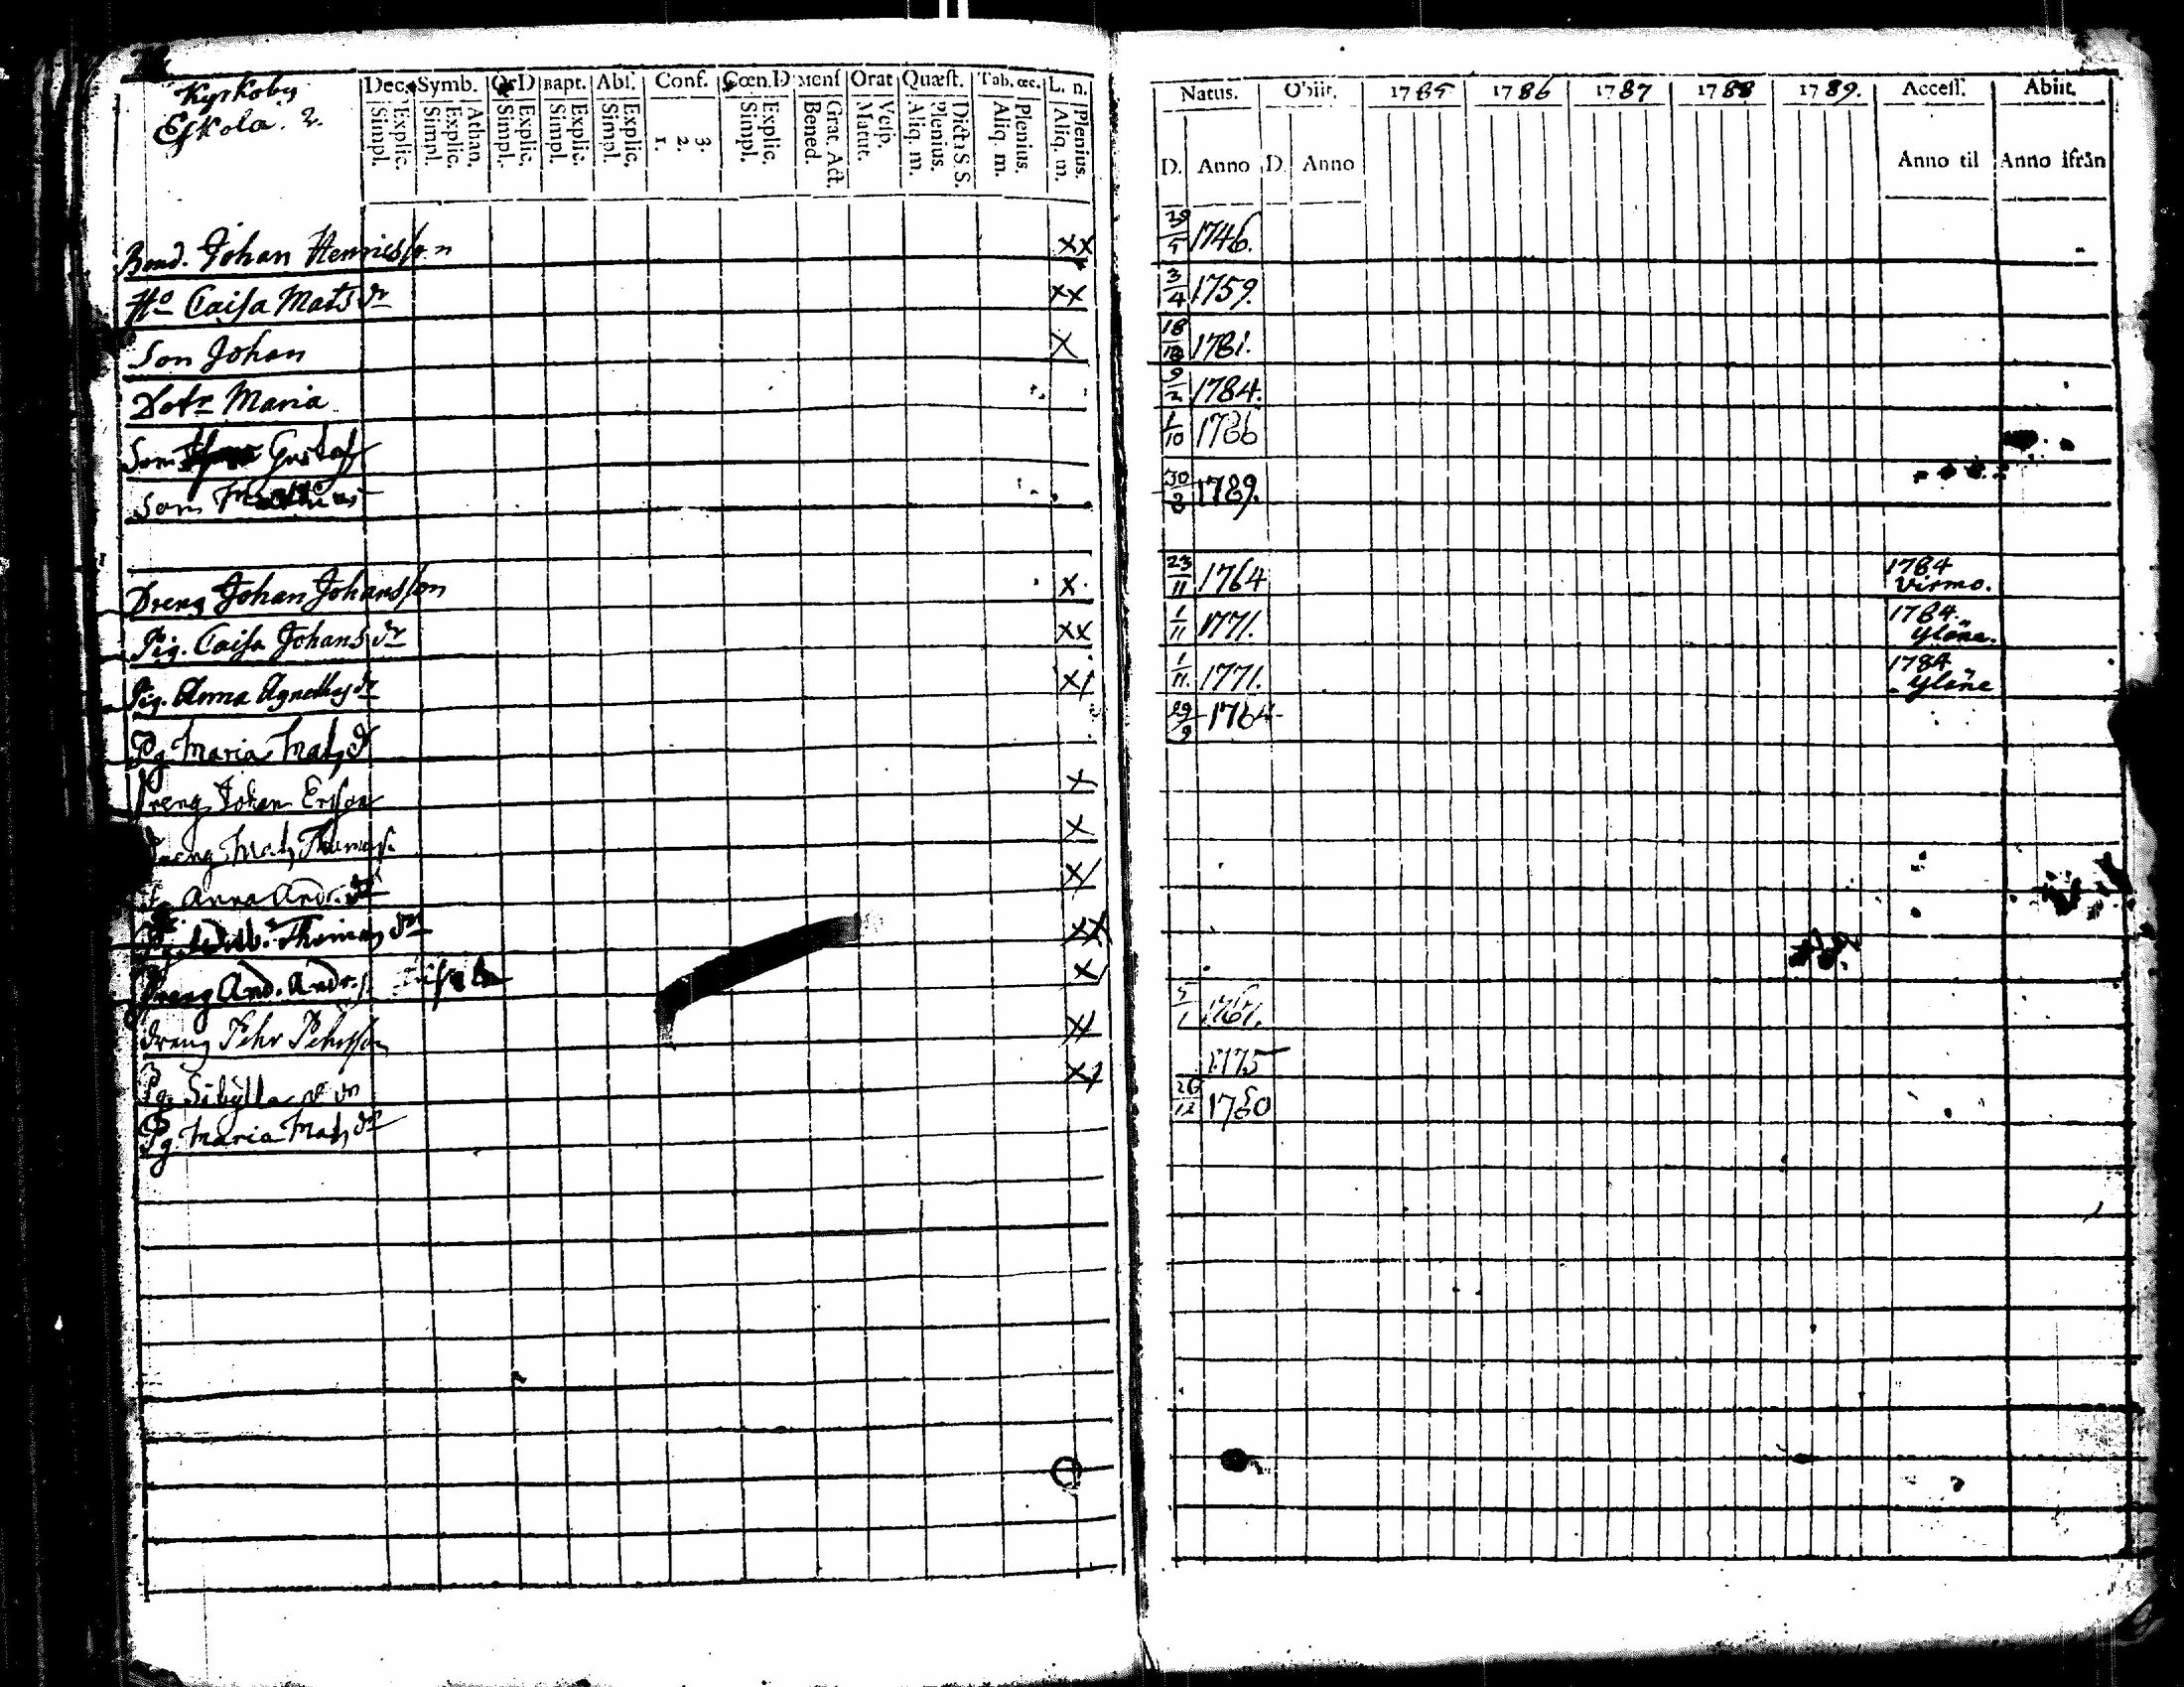 Kyrkoby
Eskola. 2.
Dec. Symb. Or D Bapt. Abs. Conf. Cœn. D Mens Orat Quæst. Tab. œc. L. n.
Explic. Simpl. Athan. Explic. Simpl. Explic. Simpl. Explic. Simpl. Explic. Simpl. 3. 2. 1. Explic. Simpl. Grat. Act. Bened. Vesp. Matut. Dict. S. S. Plenius. Aliq. m. Plenius. Aliq. m. Plenius. Aliq. m.
Natus. Obiit. 1785 1786 1787 1788 1789. Access. Abiit.
D. Anno D. Anno Anno til Anno ifrån
Bond. Johan Henricsson xx 29/5 1746.
Ho Caisa Mats dr xx 3/4 1759.
Son Johan x 18/12 1781.
Dotr Maria 9/2 1784.
Son Gustaf 1/10 1786
Son Mathias 30/8 1789.
Dreng Johan Johansson x 23/11 1764 1784 Virmo.
Pig. Caisa Johans dr xx 1/11 1771. 1784. Yläne.
Pig. Anna Agnethas dr xx 1/11. 1771. 1784 Yläne
Pg Maria Mats dr 29/9 1764
Dreng Johan Ersson x
Dreng Mats Thomass. x
Anna Andr. dr x
Thomas dr xx
Dreng And. Andr. x
Dreng Pehr Pehrsson x 5/1 1767.
Pg. Sibylla dr x 1775
Pg. Maria Mats dr 26/12 1760